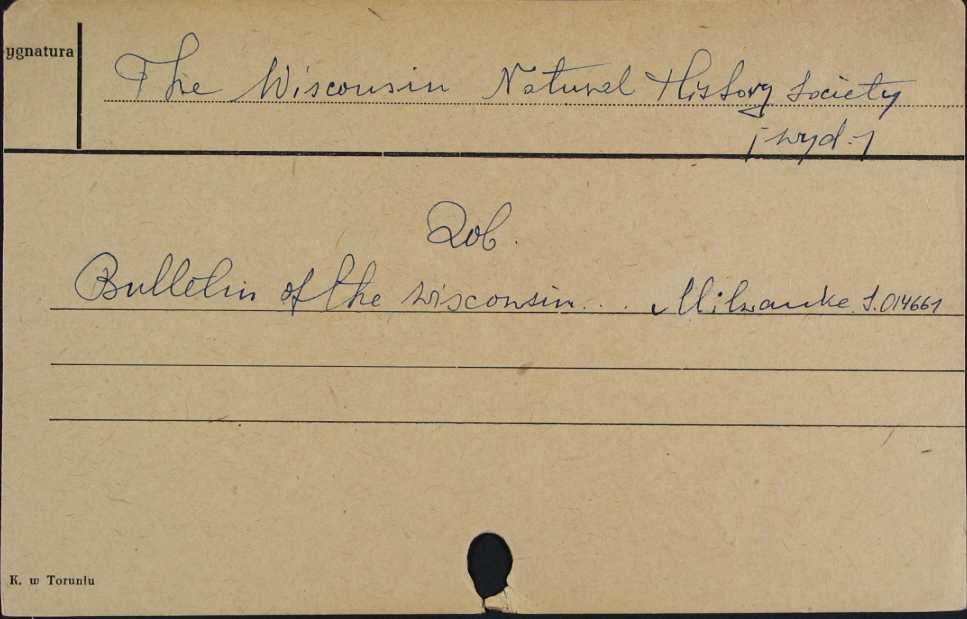 ygnatura
The Wisconsin Natural History Society
[wyd.]
Zob.
Bulletin of the Wisconsin... Milwauke S.014661
K. w Toruniu